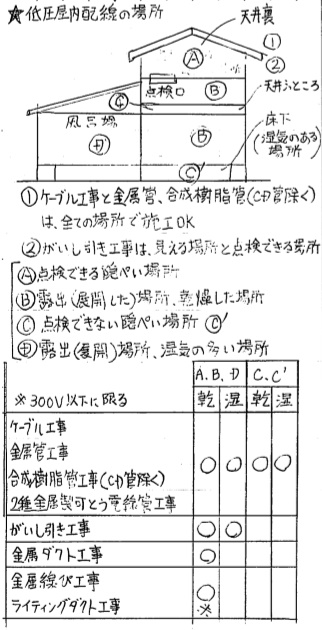 ☆低圧屋内配線の場所
天井裏
①
②
Ⓐ
点検口
Ⓑ
天井ふところ
Ⓒ
風呂場
床下
(湿気のある
場所)
Ⓓ
Ⓑ
Ⓒ'
①ケーブル工事と金属管、合成樹脂管(CD管除く)
は、全ての場所で施工OK
②がいし引き工事は、見える場所と点検できる場所
Ⓐ点検できる隠ぺい場所
Ⓑ露出(展開した)場所、乾燥した場所
Ⓒ点検できない隠ぺい場所 Ⓒ'
Ⓓ露出(展開)場所、湿気の多い場所
A.B.D C.C'
※300V以下に限る 乾 湿 乾 湿
ケーブル工事
金属管工事
合成樹脂管工事(CD管除く) ○ ○ ○ ○
2種金属製可とう電線管工事
がいし引き工事 ○ ○
金属ダクト工事 ○
金属線ぴ工事 ○
ライティングダクト工事 ※